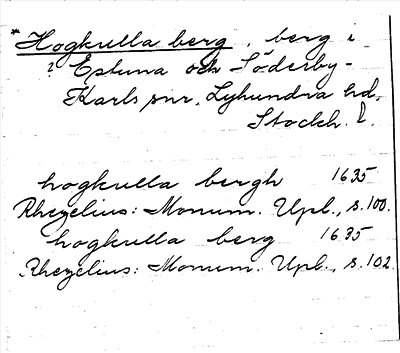 *Hogkulla berg, berg i
? Estuna och Söderby-
Karls snr, Lyhundra hd,
Stockh. l.
hogkulla bergh 1635
Rhezelius: Monum. Upl., s. 100.
hogkulla berg 1635
Rhezelius: Monum. Upl., s. 102.